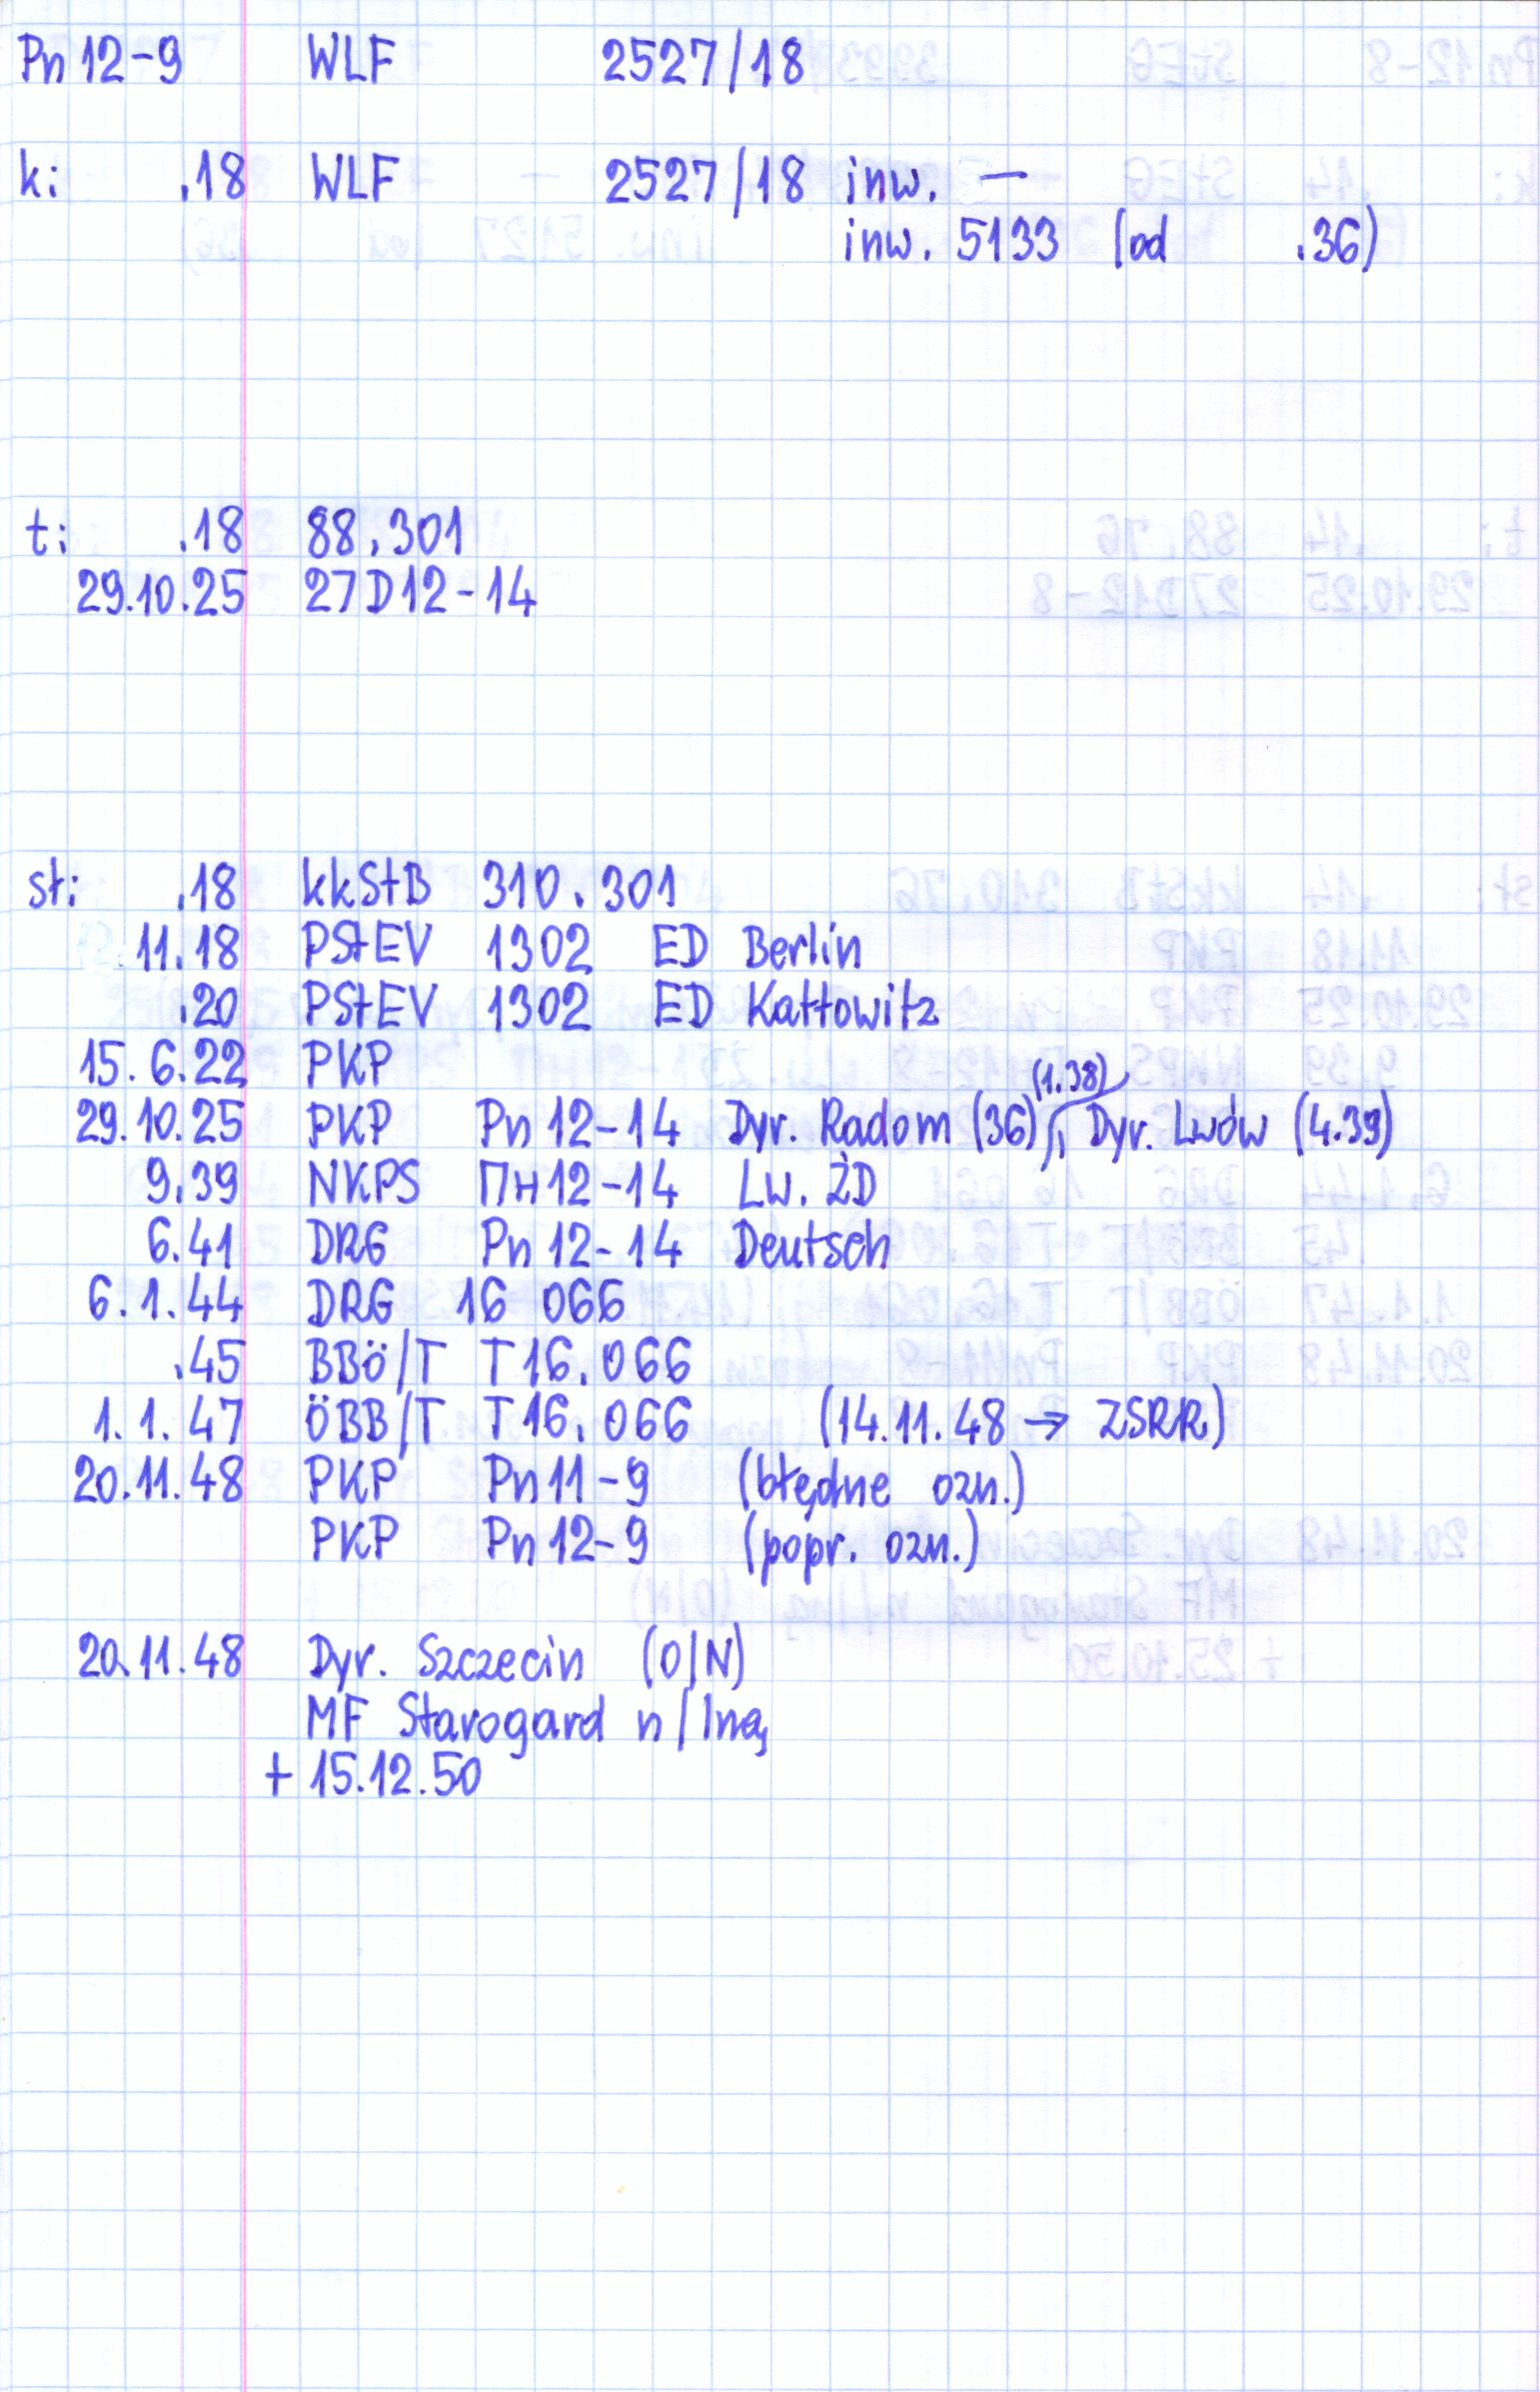 Pn 12-9 WLF 2527/18
k: .18 WLF 2527/18 inw. —
inw. 5133 (od .36)
t: .18 88.301
29.10.25 27D12-14
st: .18 kkStB 310.301
11.18 PStEV 1302 ED Berlin
.20 PStEV 1302 ED Kattowitz
15.6.22 PKP
29.10.25 PKP Pn 12-14 Dyr. Radom (36) (1.38), Dyr. Lwów (4.39)
9.39 NKPS Пн12-14 Lw. ŻD
6.41 DRG Pn 12-14 Deutsch
6.1.44 DRG 16 066
.45 BBö/T T16.066
1.1.47 ÖBB/T T16.066 (14.11.48 → ZSRR)
20.11.48 PKP Pn 11-9 (błędne ozn.)
PKP Pn 12-9 (popr. ozn.)
20.11.48 Dyr. Szczecin (O/N)
MF Starogard n/Iną
+ 15.12.50